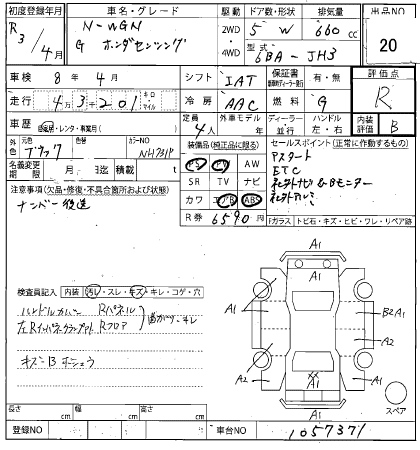 初度登録年月
R3/4月
車名・グレード
N-WGN
G ホンダセンシング
駆動
2WD
4WD
ドア数・形状
5 W
排気量
660 cc
型式
6BA-JH3
出品NO
20
車検 8年 4月
シフト IAT
保証書 有・無
評価点
R
走行 43201
キロ
マイル
冷房 AAC
燃料 G
車歴 自家用・レンタ・事業用( )
定員 4人
外車モデル 年
ディーラー 並行
ハンドル 左・右
内装 B
外色
元色
ブラック
カラーNO
NH731P
装備品(純正品に限る)
PS PW AW
SR TV ナビ
カワ エアB ABS
R券 6590円
セールスポイント(正常に作動するもの)
Pスタート
ETC
名義変更期限 月 日迄
積載 t
注意事項(欠品・修復・不具合箇所および状態)
ナンバー後送
Fガラス トビ石・キズ・ヒビ・ワレ・リペア跡
検査員記入 内装 汚レ・スレ・キズ・キレ・コゲ・穴
ハンドルカバー
Rフロア
キズB ホシュウ
A1
A1
A1
B2 A1
A2
A2
A1
XX
A1
スペア
長さ cm
幅 cm
高さ cm
登録NO
車台NO 1057371